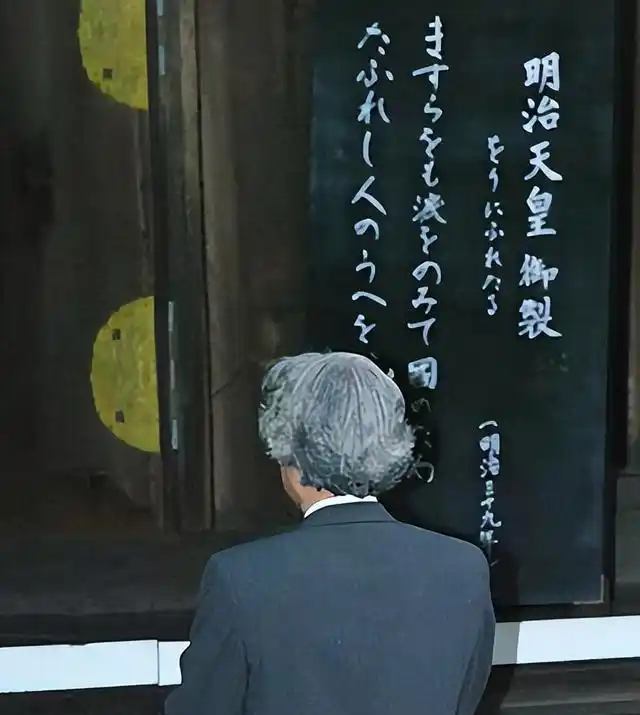 明治天皇御製
をりにふれたる（明治三十九年）
ますらをも涙をのみて国のため
たふれし人のうへを